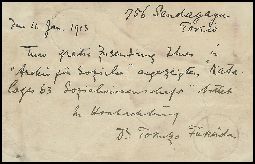 756 Sendagaya
Tokio
Den 11 Jan. 1913
Um gratis Zusendung Ihres in
"Archiv für Sozialw" angezeigten "Kata-
loges 63 Sozialwissenschaft" bittet
in Hochachtung
Dr Tokuzo Fukuda